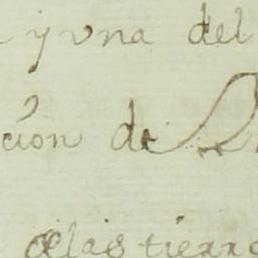 y vna del
cion de
delas tierra